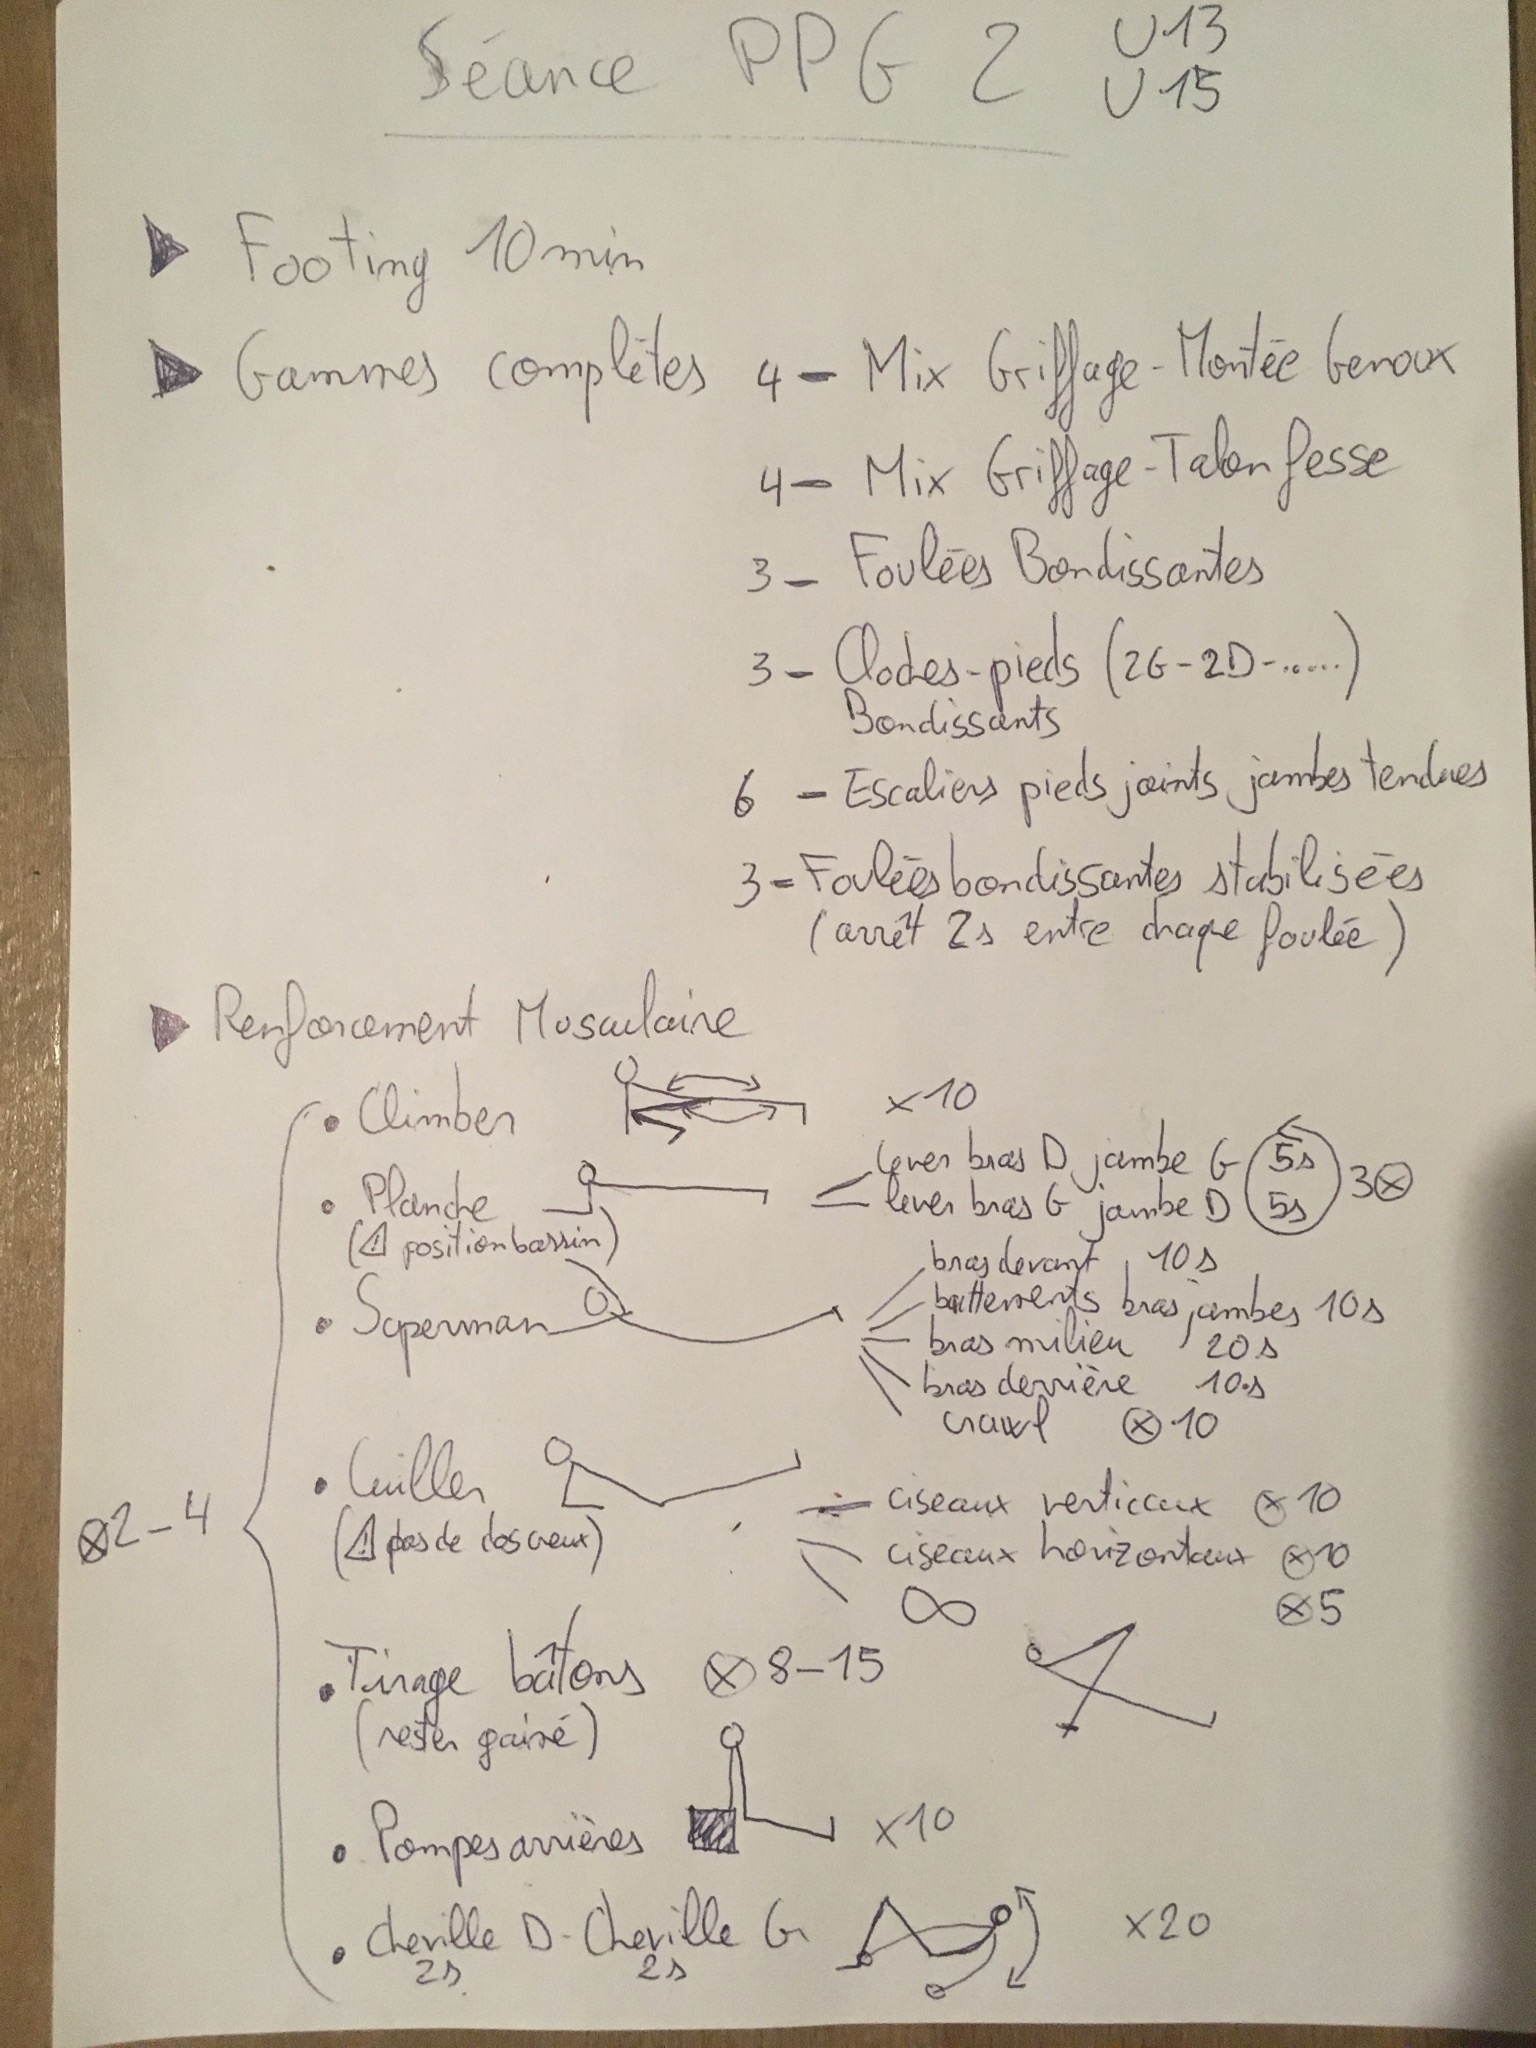 Séance PPG 2 U13
U15
Footing 10min
Gammes complètes 4 - Mix Griffage - Montée Genoux
4 - Mix Griffage - Talon fesse
3 - Foulées Bondissantes
3 - Cloches-pieds (2G-2D-......)
Bondissants
6 - Escaliers pieds joints jambes tendues
3 - Foulées bondissantes stabilisées
(arrêt 2s entre chaque foulée)
Renforcement Musculaire
• Climber x10
• Planche lever bras D jambe G 5s
lever bras G jambe D 5s 3⊗
(⚠ position bassin)
• Superman bras devant 10s
battements bras jambes 10s
bras milieu 20s
bras derrière 10s
crawl ⊗10
• Cuiller ciseaux verticaux ⊗10
(⚠ pas de dos creux) ciseaux horizontaux ⊗10
∞ ⊗5
⊗2-4
• Tirage bâtons ⊗8-15
(rester gainé)
• Pompes arrières x10
• Cheville D - Cheville G x20
2s 2s